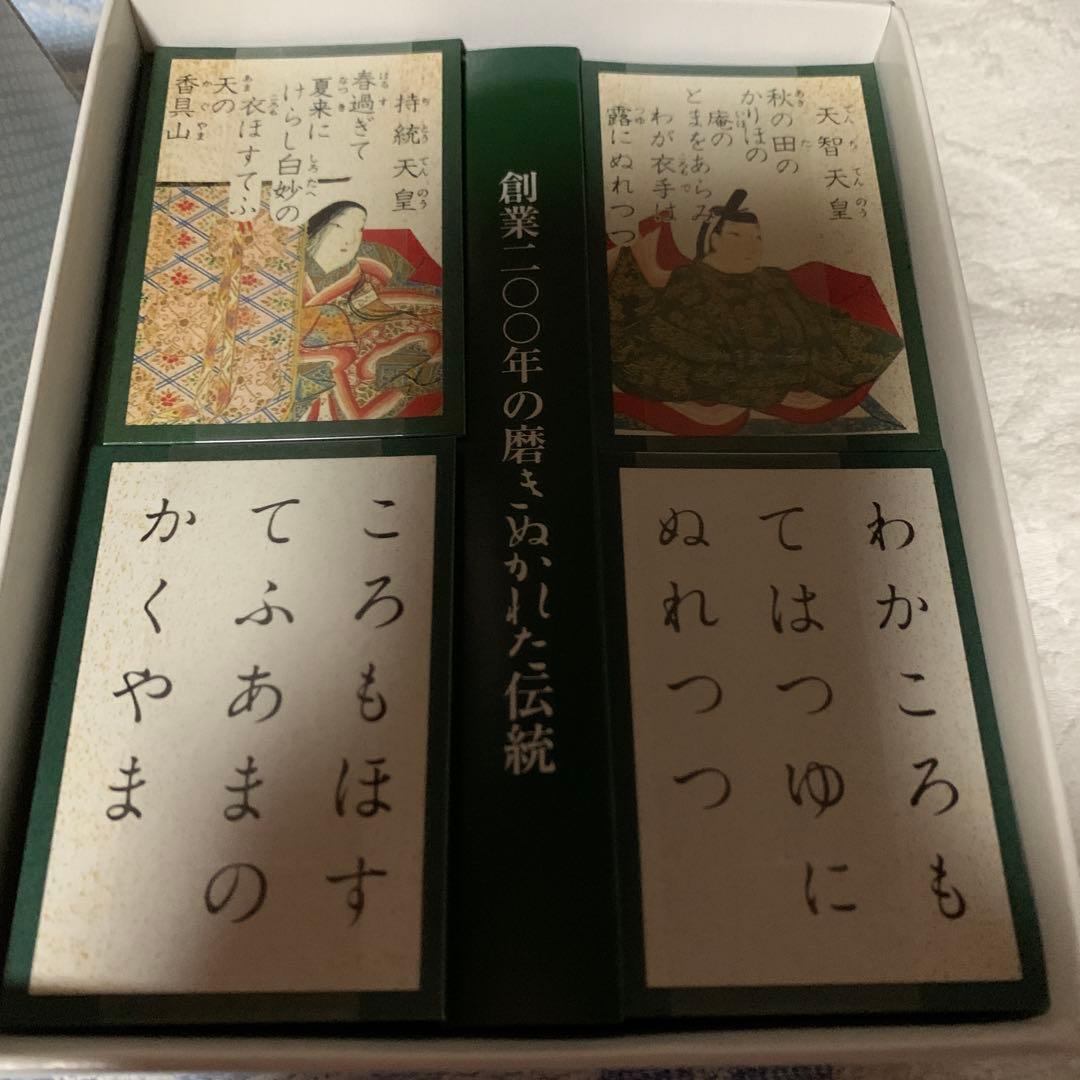 天智天皇
てんぢてんのう
秋の田の
かりほの
庵の
とまをあらみ
わが衣手は
露にぬれつつ
持統天皇
ぢとうてんのう
春過ぎて
夏来に
けらし白妙の
衣ほすてふ
天の
香具山
創業二〇〇年の磨きぬかれた伝統
わかころも
てはつゆに
ぬれつつ
ころもほす
てふあまの
かくやま